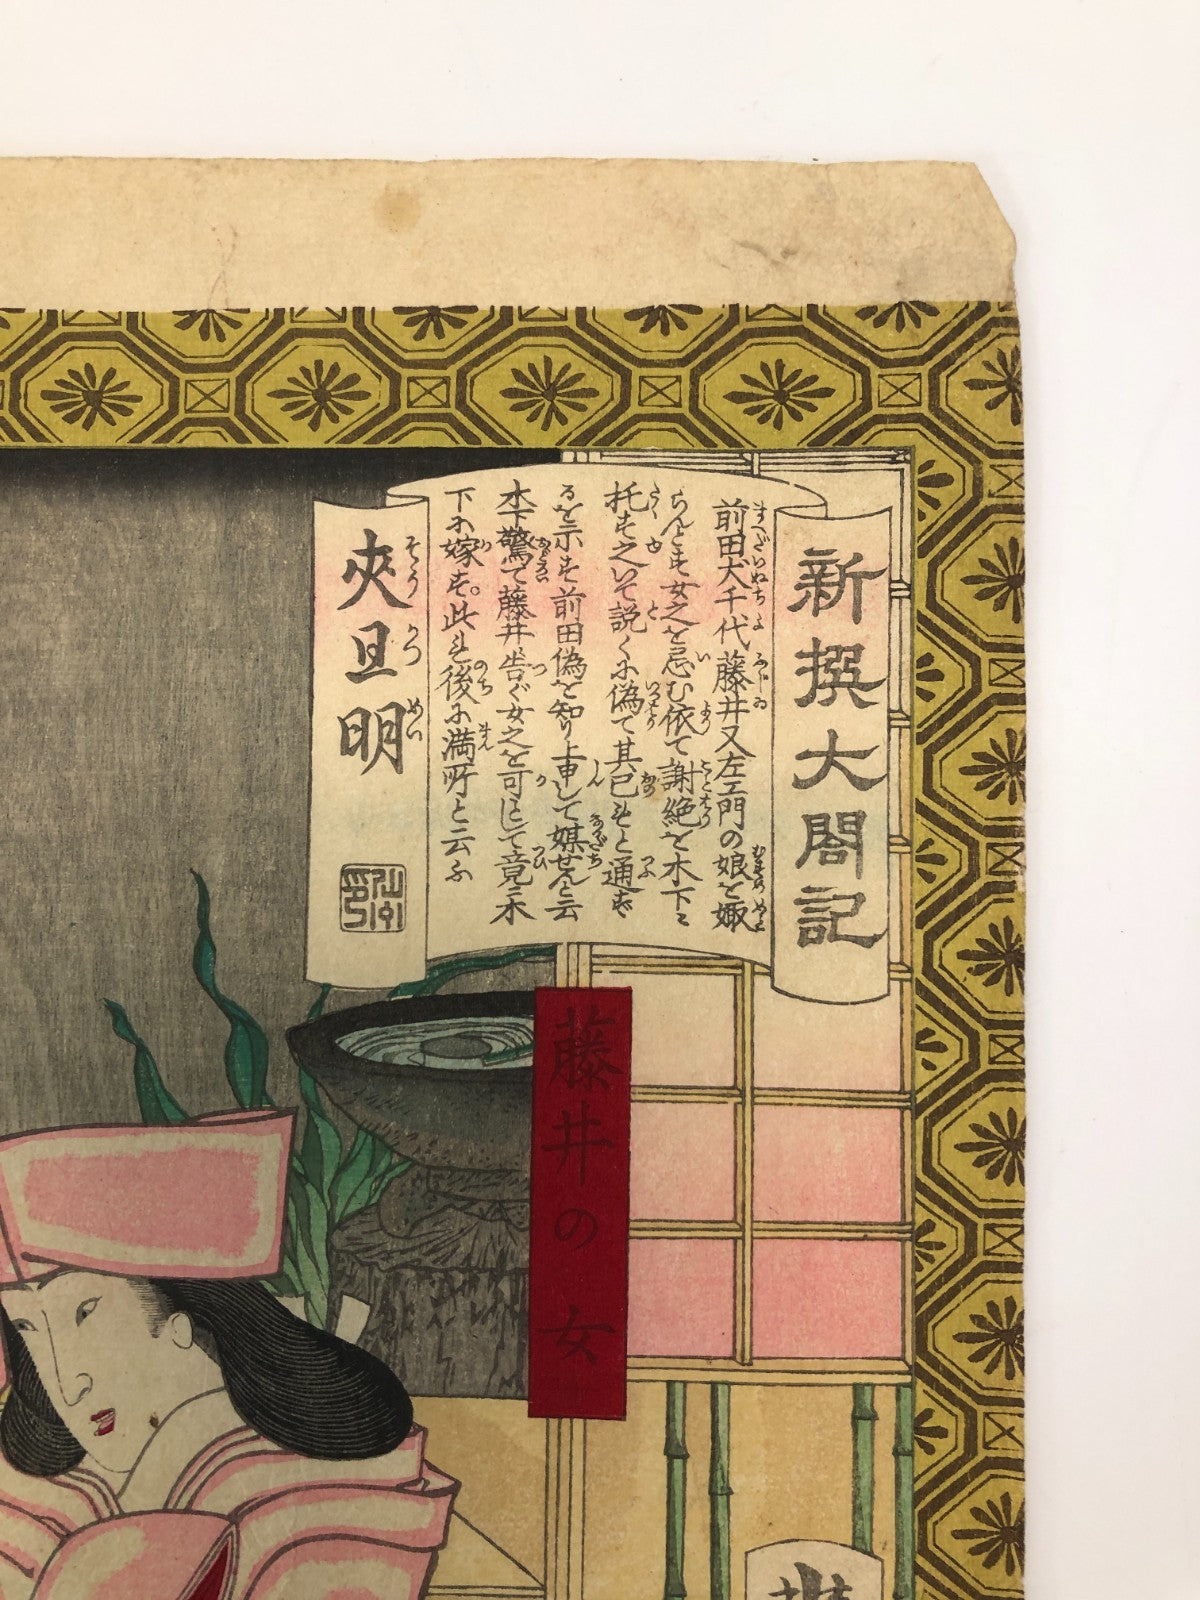 新撰大閤記
前田犬千代藤井又左エ門の娘を娵
らんとす女之を忌む依て謝絶を木下に
托す之いて説くに偽て其已すと通ず
るを示す前田偽を知り上申して媒せんと云
木下驚て藤井告ぐ女之を可として竟ニ木
下に嫁す。此す後に満所と云ふ
夾旦明
藤井の女